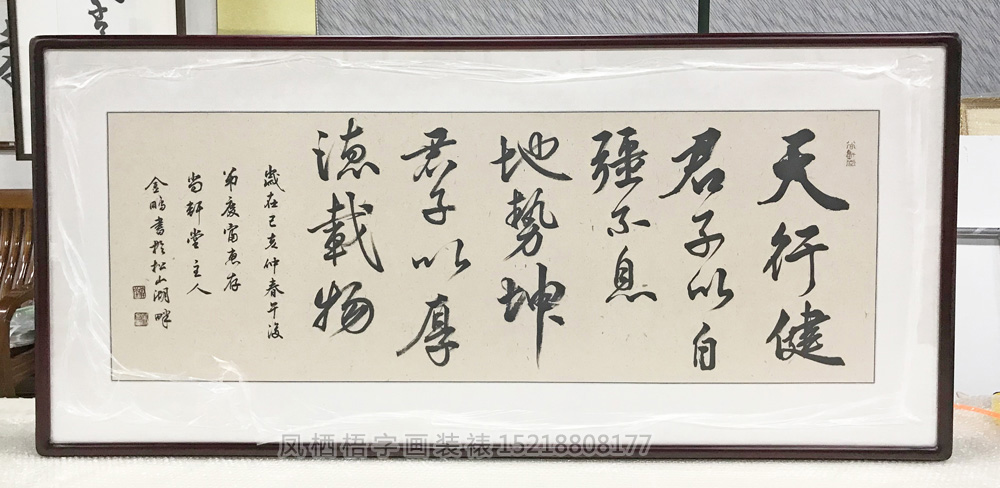 天行健
君子以自
强不息
地势坤
君子以厚
德载物
歲在己亥仲春午後
尚軒堂主人
金鵬書於松山湖畔
凤栖梧字画装裱15218808177